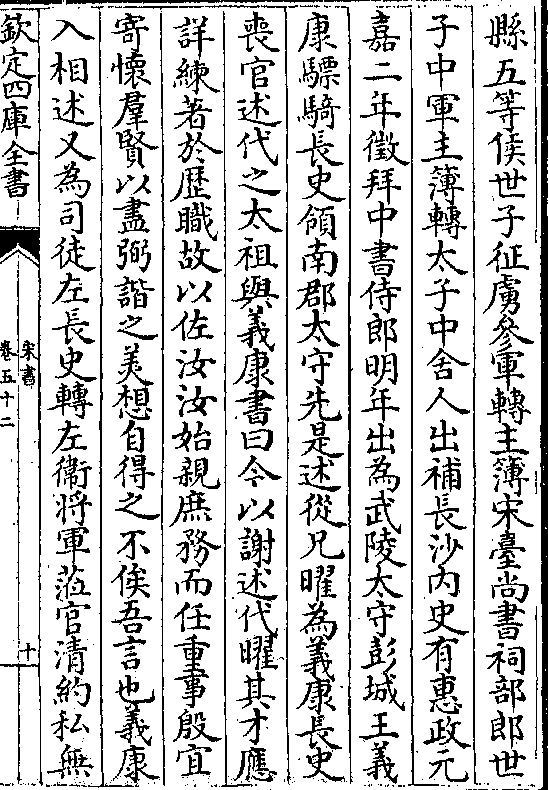 縣五等侯世子征虜參軍轉主簿宋臺尚書祠部郎世
子中軍主簿轉太子中舍人出補長沙內史有惠政元
嘉二年徵拜中書侍郎明年出為武陵太守彭城王義
康驃騎長史領南郡太守先是述從兄曜為義康長史
喪官述代之太祖與義康書曰今以謝述代曜其才應
詳練著於歷職故以佐汝汝始親庶務而任重事殷宜
寄懷羣賢以盡弼諧之美想自得之不俟吾言也義康
入相述又為司徒左長史轉左衛將軍蒞官清約私無
欽定四庫全書
宋書
卷五十二
十